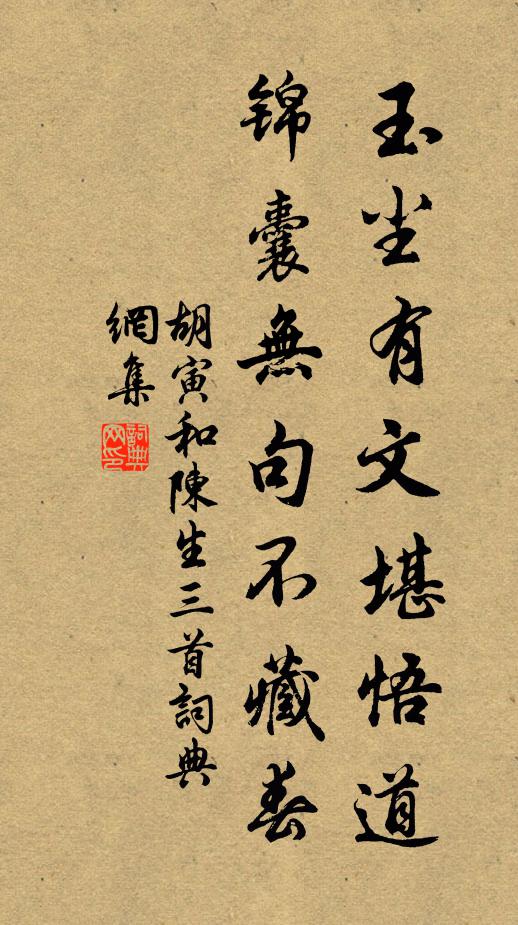 玉坐有文堪悟道
锦囊無句不藏春
胡寅和陳生三首詞典
網集
詞典
网印